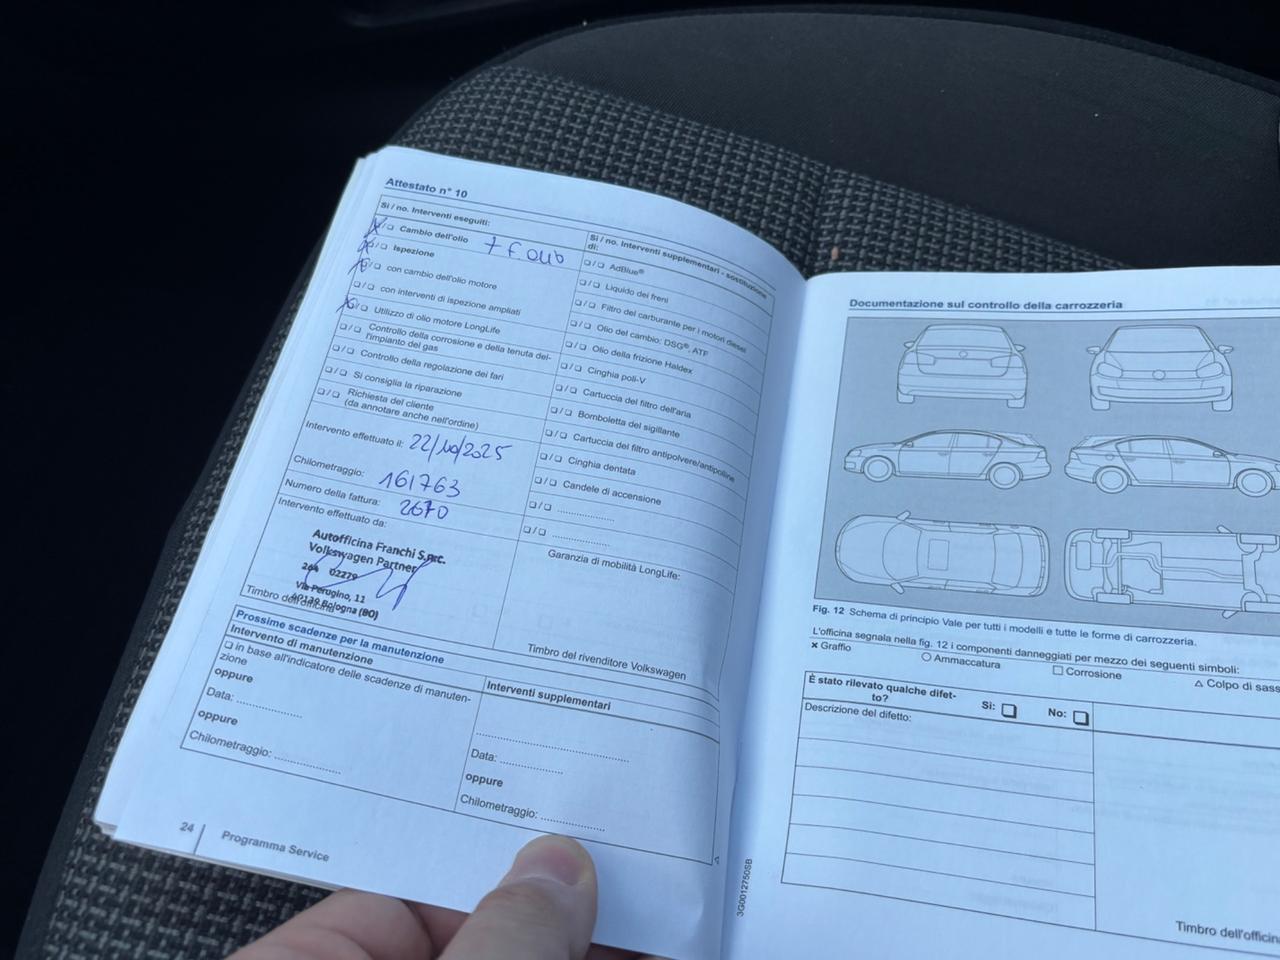 Attestato n° 10
Si / no. Interventi eseguiti:
❏ / ❏ Cambio dell'olio
❏ / ❏ Ispezione
❏ / ❏ con cambio dell'olio motore
❏ / ❏ con interventi di ispezione ampliati
❏ / ❏ Utilizzo di olio motore LongLife
❏ / ❏ Controllo della corrosione e della tenuta del-
l'impianto del gas
❏ / ❏ Controllo della regolazione dei fari
❏ / ❏ Si consiglia la riparazione
❏ / ❏ Richiesta del cliente
(da annotare anche nell'ordine)
Intervento effettuato il: 22/10/2025
Chilometraggio: 161763
Numero della fattura: 2670
Intervento effettuato da:
Autofficina Franchi S.n.c.
Volkswagen Partner
264 02279
Via Perugino, 11
40139 Bologna (BO)
Timbro dell'officina
Si / no. Interventi supplementari - sostituzione
di:
❏ / ❏ AdBlue®
❏ / ❏ Liquido dei freni
❏ / ❏ Filtro del carburante per i motori diesel
❏ / ❏ Olio del cambio: DSG®, ATF
❏ / ❏ Olio della frizione Haldex
❏ / ❏ Cinghia poli-V
❏ / ❏ Cartuccia del filtro dell'aria
❏ / ❏ Bomboletta del sigillante
❏ / ❏ Cartuccia del filtro antipolvere/antipolline
❏ / ❏ Cinghia dentata
❏ / ❏ Candele di accensione
❏ / ❏ ....................
❏ / ❏ ....................
Garanzia di mobilità LongLife:
Timbro del rivenditore Volkswagen
Prossime scadenze per la manutenzione
Intervento di manutenzione
❏ in base all'indicatore delle scadenze di manuten-
zione
oppure
Data: ....................
oppure
Chilometraggio: ....................
Interventi supplementari
Data: ....................
oppure
Chilometraggio: ....................
24
Programma Service
Documentazione sul controllo della carrozzeria
Fig. 12 Schema di principio Vale per tutti i modelli e tutte le forme di carrozzeria.
L'officina segnala nella fig. 12 i componenti danneggiati per mezzo dei seguenti simboli:
× Graffio ○ Ammaccatura □ Corrosione △ Colpo di sass
È stato rilevato qualche difet-
to? Si: ❏ No: ❏
Descrizione del difetto:
Timbro dell'officin
3G0012750SB